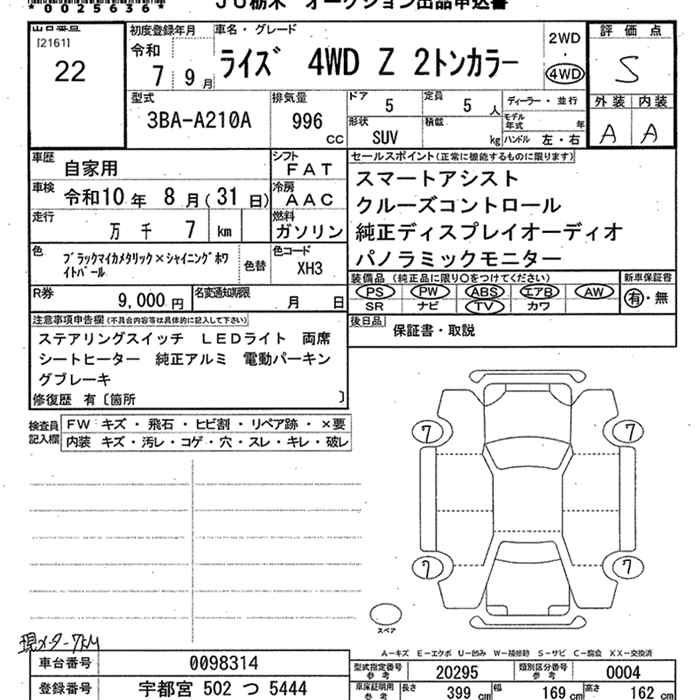 *0025636*
JU栃木 オークション出品申込書
出品番号
[2161]
22
初度登録年月
令和
7 9月
車名・グレード
ライズ 4WD Z 2トンカラー
2WD
・
4WD
評価点
S
外装 内装
A A
型式
3BA-A210A
排気量
996
cc
ドア
5
定員
5 人
形状
SUV
積載
kg
ディーラー・並行
モデル年式 年
ハンドル 左・右
車歴
自家用
シフト
FAT
車検
令和10年 8月(31日)
冷房
AAC
走行
万 千 7 km
燃料
ガソリン
色
ブラックマイカメタリック×シャイニングホワイトパール
色替
色コード
XH3
R券
9,000円
名変通知期限
月 日
セールスポイント(正常に機能するものに限ります)
スマートアシスト
クルーズコントロール
純正ディスプレイオーディオ
パノラミックモニター
装備品 (純正品に限り○をつけてください)
PS PW ABS エアB AW
SR ナビ TV カワ
新車保証書
有・無
後日品
保証書・取説
注意事項申告欄(不具合内容等は具体的に記入して下さい)
ステアリングスイッチ LEDライト 両席
シートヒーター 純正アルミ 電動パーキン
グブレーキ
修復歴 有〔箇所 〕
検査員
記入欄
FW キズ・飛石・ヒビ割・リペア跡・×要
内装 キズ・汚レ・コゲ・穴・スレ・キレ・破レ
7 7
7 7
スペア
現メーター7KM
A-キズ E-エクボ U-凹み W-補修跡 S-サビ C-腐食 XX-交換済
車台番号
0098314
登録番号
宇都宮 502 つ 5444
型式指定番号
参考
20295
類別区分番号
参考
0004
車庫証明用
参考
長さ
399 cm
幅
169 cm
高さ
162 cm